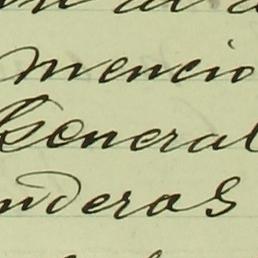 mencio
General
nderas